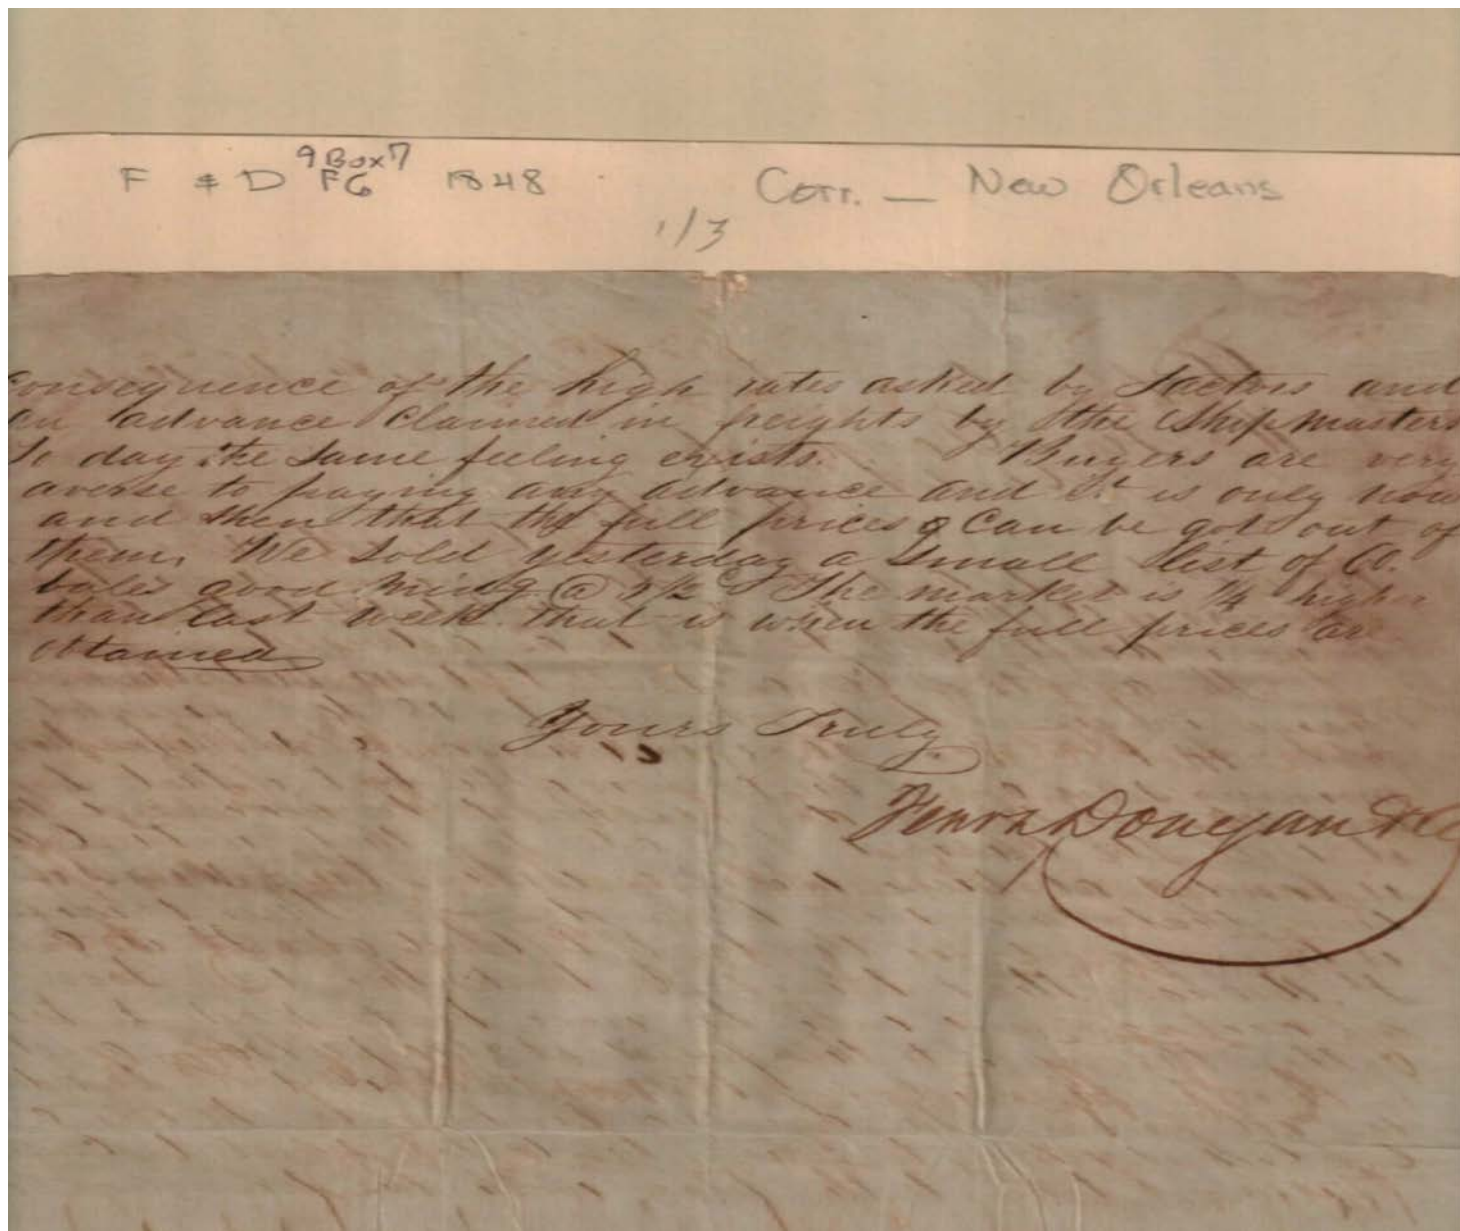 9 Box 7
F & D F6 1848 Corr. — New Orleans
1/3
Consequence of the high rates asked by factors and
an advance claimed in freights by the Shipmasters
To day the same feeling exists. Buyers are very
averse to paying any advance and it is only now
and then that the full prices can be got out of
them. We sold yesterday a small list of
bales good midg @ The market is 1/4 higher
than last week that is when the full prices are
obtained
Yours Truly
Fearn Donegan & Co